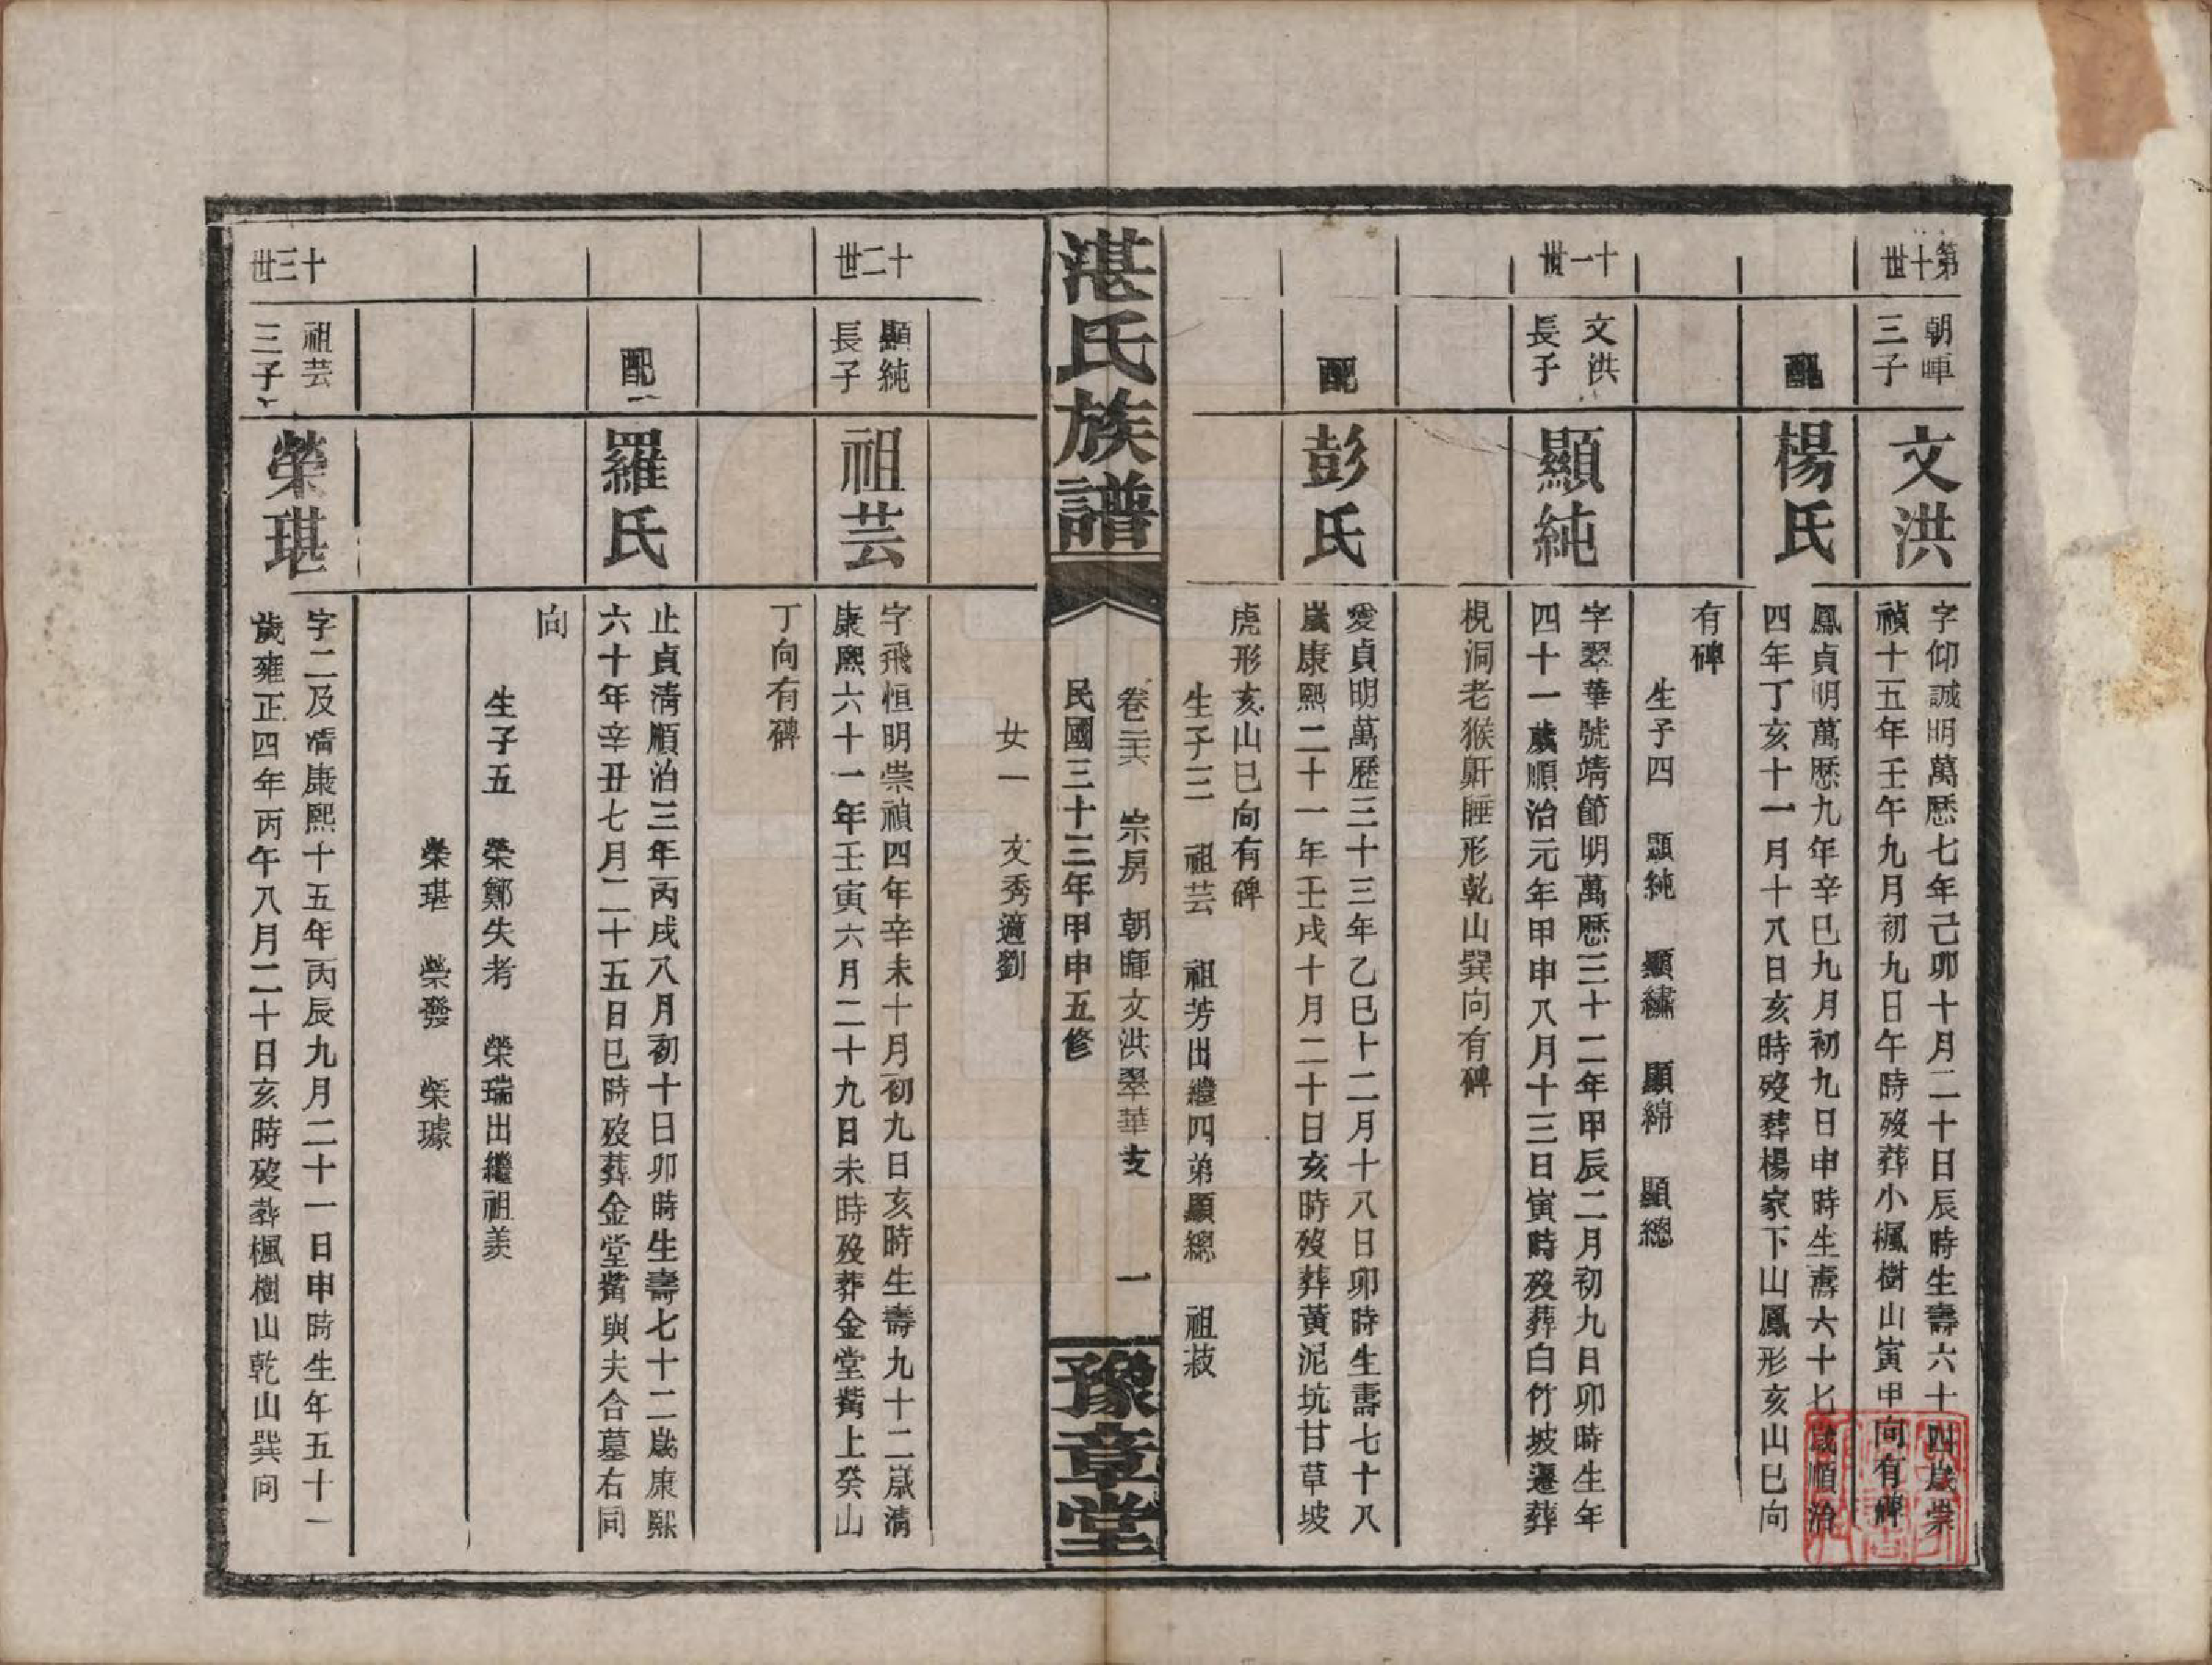 第十世
朝暉
三子
文洪
字仰誠明萬歷七年己卯十月二十日辰時生壽六十四歲崇
禎十五年壬午九月初九日午時歿葬小楓樹山寅甲向有碑
配
楊氏
鳳貞明萬歷九年辛巳九月初九日申時生壽六十七歲順治
四年丁亥十一月十八日亥時歿葬楊家下山鳳形亥山巳向
有碑
生子四　顯純　顯繡　顯綿　顯總
十一世
文洪
長子
顯純
字翠華號靖節明萬歷三十二年甲辰二月初九日卯時生年
四十一歲順治元年甲申八月十三日寅時歿葬白竹坡遷葬
梘洞老猴鼾睡形乾山巽向有碑
配
彭氏
愛貞明萬歷三十三年乙巳十二月十八日卯時生壽七十八
歲康熙二十一年壬戌十月二十日亥時歿葬黃泥坑甘草坡
虎形亥山巳向有碑
生子三　祖芸　祖芳出繼四弟顯總　祖菽
湛氏族譜
卷二六　宗房　朝暉文洪翠華支　一
民國三十三年甲申五修
豫章堂
女一　友秀適劉
十二世
顯純
長子
祖芸
字飛恒明崇禎四年辛未十月初九日亥時生壽九十二歲清
康熙六十一年壬寅六月二十九日未時歿葬金堂嘴上癸山
丁向有碑
配
羅氏
止貞清順治三年丙戌八月初十日卯時生壽七十二歲康熙
六十年辛丑七月二十五日巳時歿葬金堂嘴與夫合墓右同
向
生子五　榮鄭失考　榮瑞出繼祖羨
榮琪　榮發　榮璩
十三世
祖芸
三子
榮琪
字二及清康熙十五年丙辰九月二十一日申時生年五十一
歲雍正四年丙午八月二十日亥時歿葬楓樹山乾山巽向